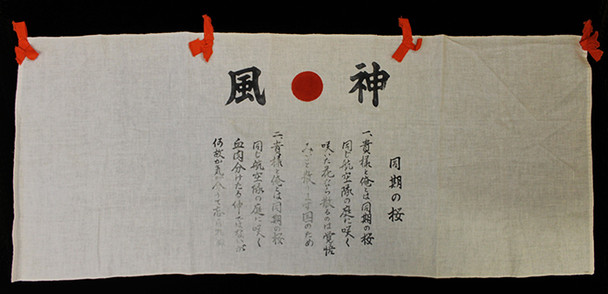 神風
同期の桜
一、貴様と俺とは同期の桜
同じ航空隊の庭に咲く
咲いた花なら散るのは覚悟
みごと散 国のため
二、貴様と俺とは同期の桜
同じ航空隊の庭に咲く
血肉分けたる仲ではないが
何故か気が合 て忘られぬ